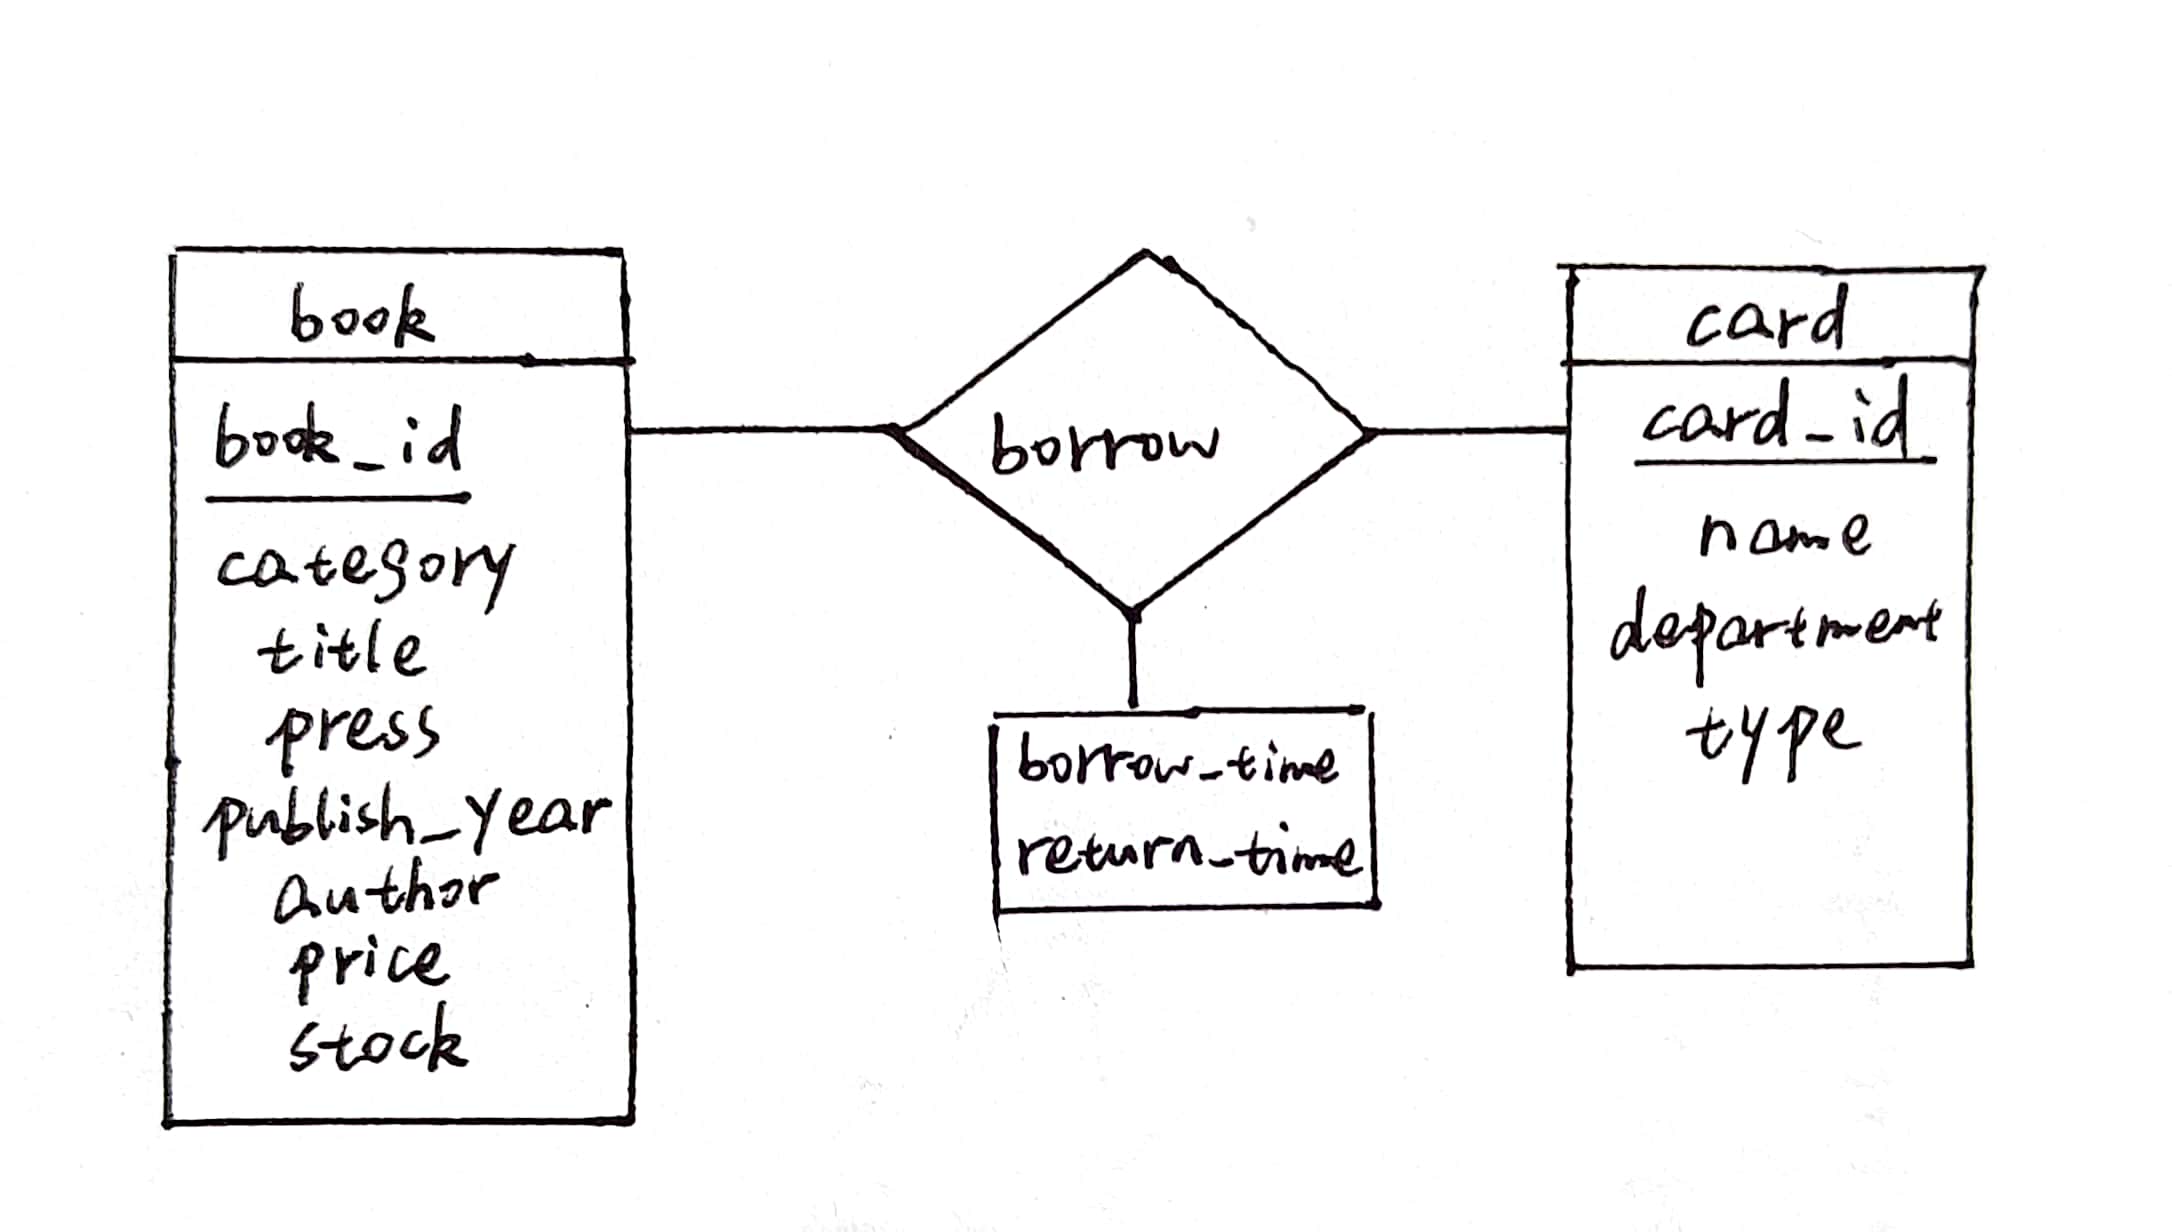 book
book_id
category
title
press
publish_year
author
price
stock
borrow
borrow_time
return_time
card
card_id
name
department
type